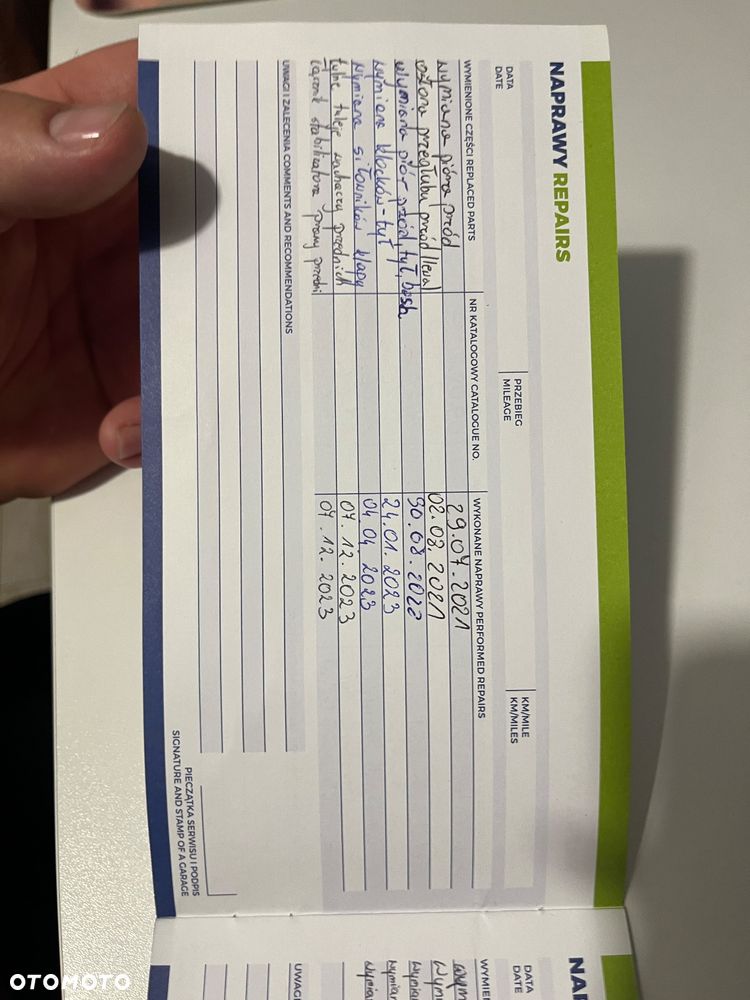 NAPRAWY REPAIRS
DATA
DATE
PRZEBIEG
MILEAGE
KM/MILE
KM/MILES
WYMIENIONE CZĘŚCI REPLACED PARTS
NR KATALOGOWY CATALOGUE NO.
WYKONANE NAPRAWY PERFORMED REPAIRS
wymiana pióra przód 29.07.2021
osłona przegubu przód lewa 02.08.2021
wymiana piór przód, tył, bosh 30.08.2022
wymiana klocków - tył 24.01.2023
wymiana siłowników klapy 04.04.2023
tylne tuleje wahaczy przednich 07.12.2023
łącznik stabilizatora prawy przedni 07.12.2023
UWAGI I ZALECENIA COMMENTS AND RECOMMENDATIONS
PIECZĄTKA SERWISU I PODPIS
SIGNATURE AND STAMP OF A GARAGE
NA
DATA
DATE
WYMIE
wym
wymi
wymi
wymian
wymia
UWAG
OTOMOTO